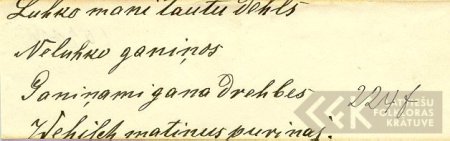 Luhko mani tautu dehls
Neluhko ganiņos
Ganiņami gana drehbes 2247
Wehjsch matinus purinaj.
LATVIEŠU
FOLKLORAS
KRĀTUVE